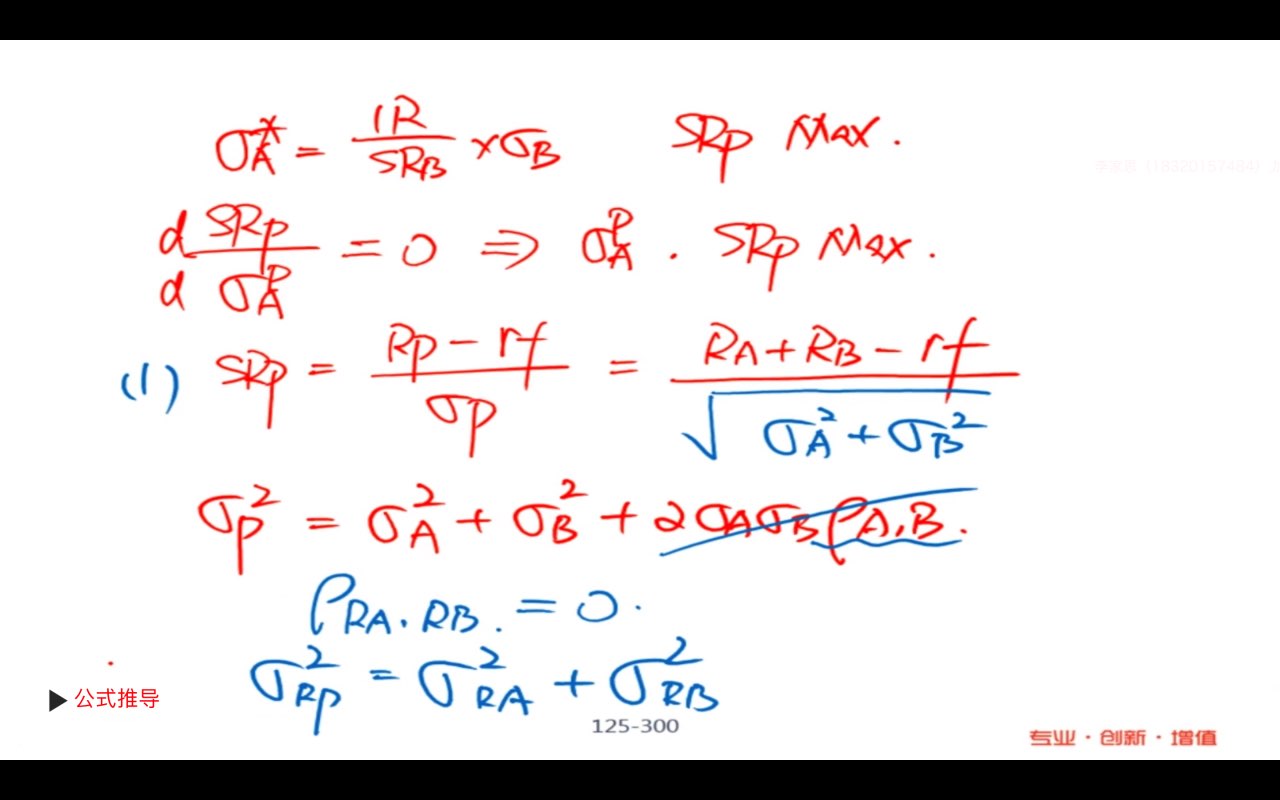 σ_A^* = IR/SR_B × σ_B    SRp Max.
d SRp / d σ_A^P = 0 ⇒ σ_A^P . SRp Max.
(1) SRp = (Rp − rf)/σp = (R_A + R_B − rf)/√(σ_A^2 + σ_B^2)
σ_p^2 = σ_A^2 + σ_B^2 + 2σ_Aσ_Bρ_A,B.
ρ_RA,RB. = 0.
σ_Rp^2 = σ_RA^2 + σ_RB^2
▶ 公式推导
125-300
专业·创新·增值